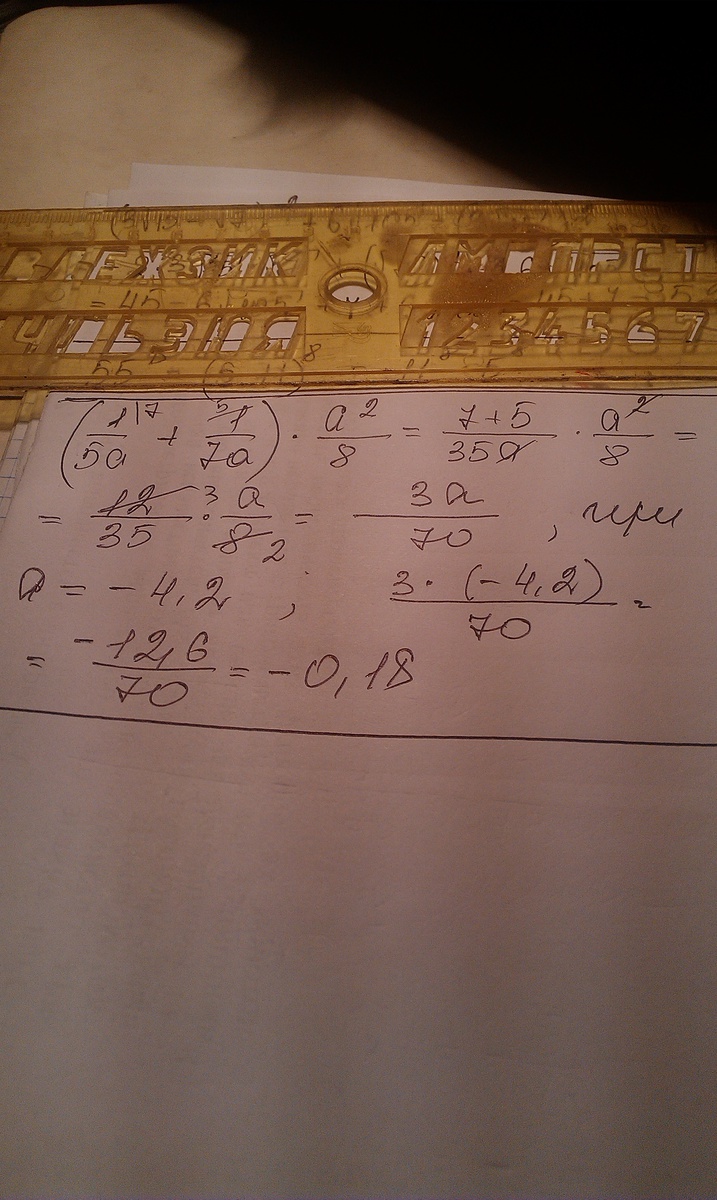 ЕЖЗИК ЛМ ПРСТ
ЧШЬЭЮЯ 1234567
(1/5a |7 + 5| 1/7a) · a²/8 = 7+5/35a · a²/8 =
= 12/35 3 · a/8 2 = 3a/70 , при
a = -4,2 ; 3·(-4,2)/70 =
= -12,6/70 = -0,18